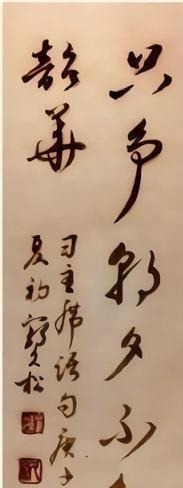 只争朝夕不
韶华
司主席语句庚子
夏初
松